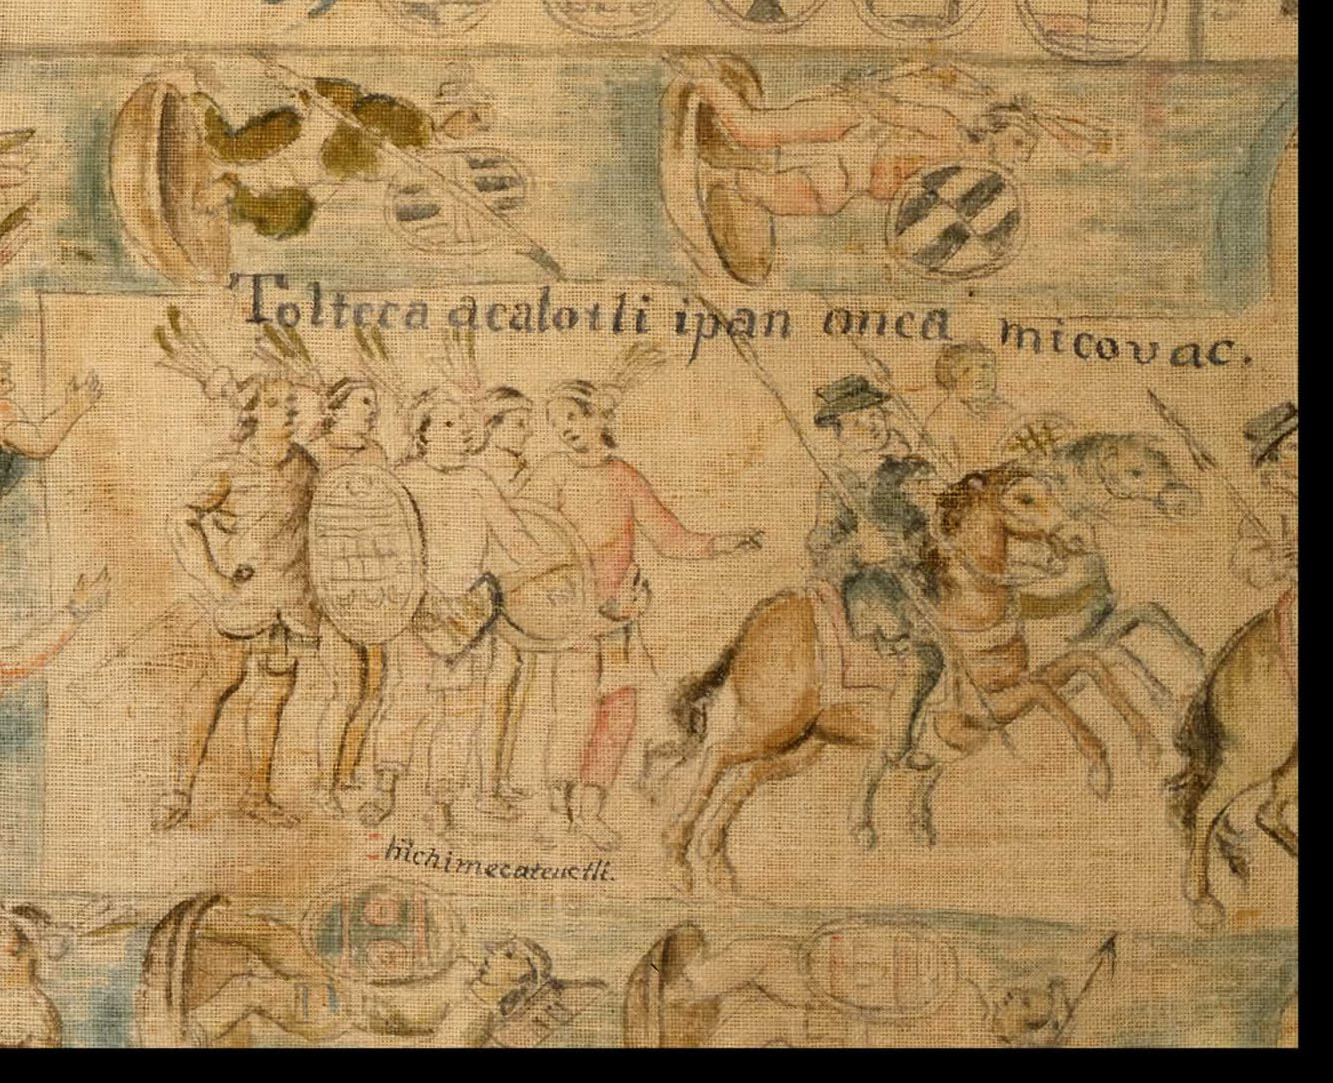 Tolteca acalotli ipan onca micovac.
Chichimecateuctli.